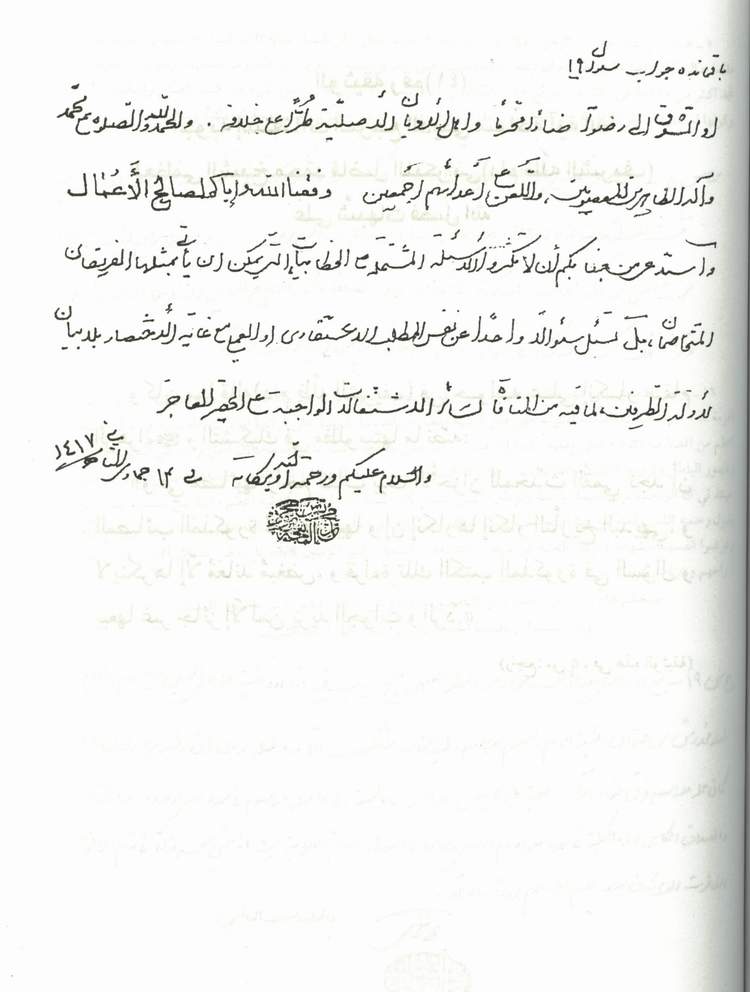 باقمانده جواب سؤال ١٩
او التشوق الى رضوان وأهل الأديان الأصلية طُرًّا على خلافه . والحمد لله والصلاة على محمد
وآله الطاهرين المعصومين، واللعن على أعدائهم أجمعين وفقنا الله وإياكم لصالح الأَعْمٰال
وأستدعي من جنابكم أن لا تكثروا الأسئلة المشتملة على الخطابيات التي يمكن ان يأتي بمثلها الفريقان
المتخاصمان، بل تسئل سئوالًا واحدًا عن نفس المطلب الاعتقادى او العملي مع غاية الأختصار بلا بيان
لأدلة الطرفين، لما فيه من المنافاة لسائر الاشتغالات الواجبة على الحقير العاجز
والسلام عليكم ورحمة الله وبركاته في ١٣ جمادى الثانية ١٤١٧